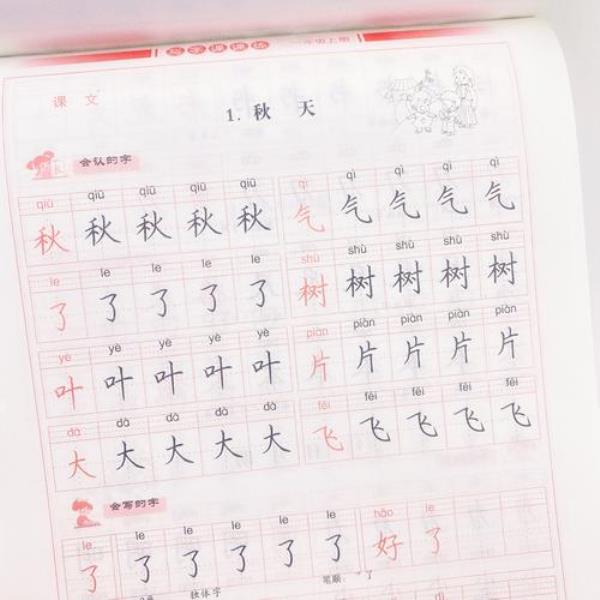 写字课课练 一年级上册
课 文
1. 秋 天
会认的字
qiū qiū qiū qiū qiū qì qì qì qì qì
秋 秋 秋 秋 秋 气 气 气 气 气
le le le le le shù shù shù shù shù
了 了 了 了 了 树 树 树 树 树
yè yè yè yè yè piàn piàn piàn piàn piàn
叶 叶 叶 叶 叶 片 片 片 片 片
dà dà dà dà dà fēi fēi fēi fēi fēi
大 大 大 大 大 飞 飞 飞 飞 飞
会写的字
le le le le le le hǎo le
了 了 了 了 了 了 好 了
独体字 笔顺: 了